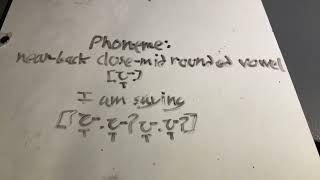 Phoneme:
near-back close-mid rounded vowel
[ʊ̞]
I am saying